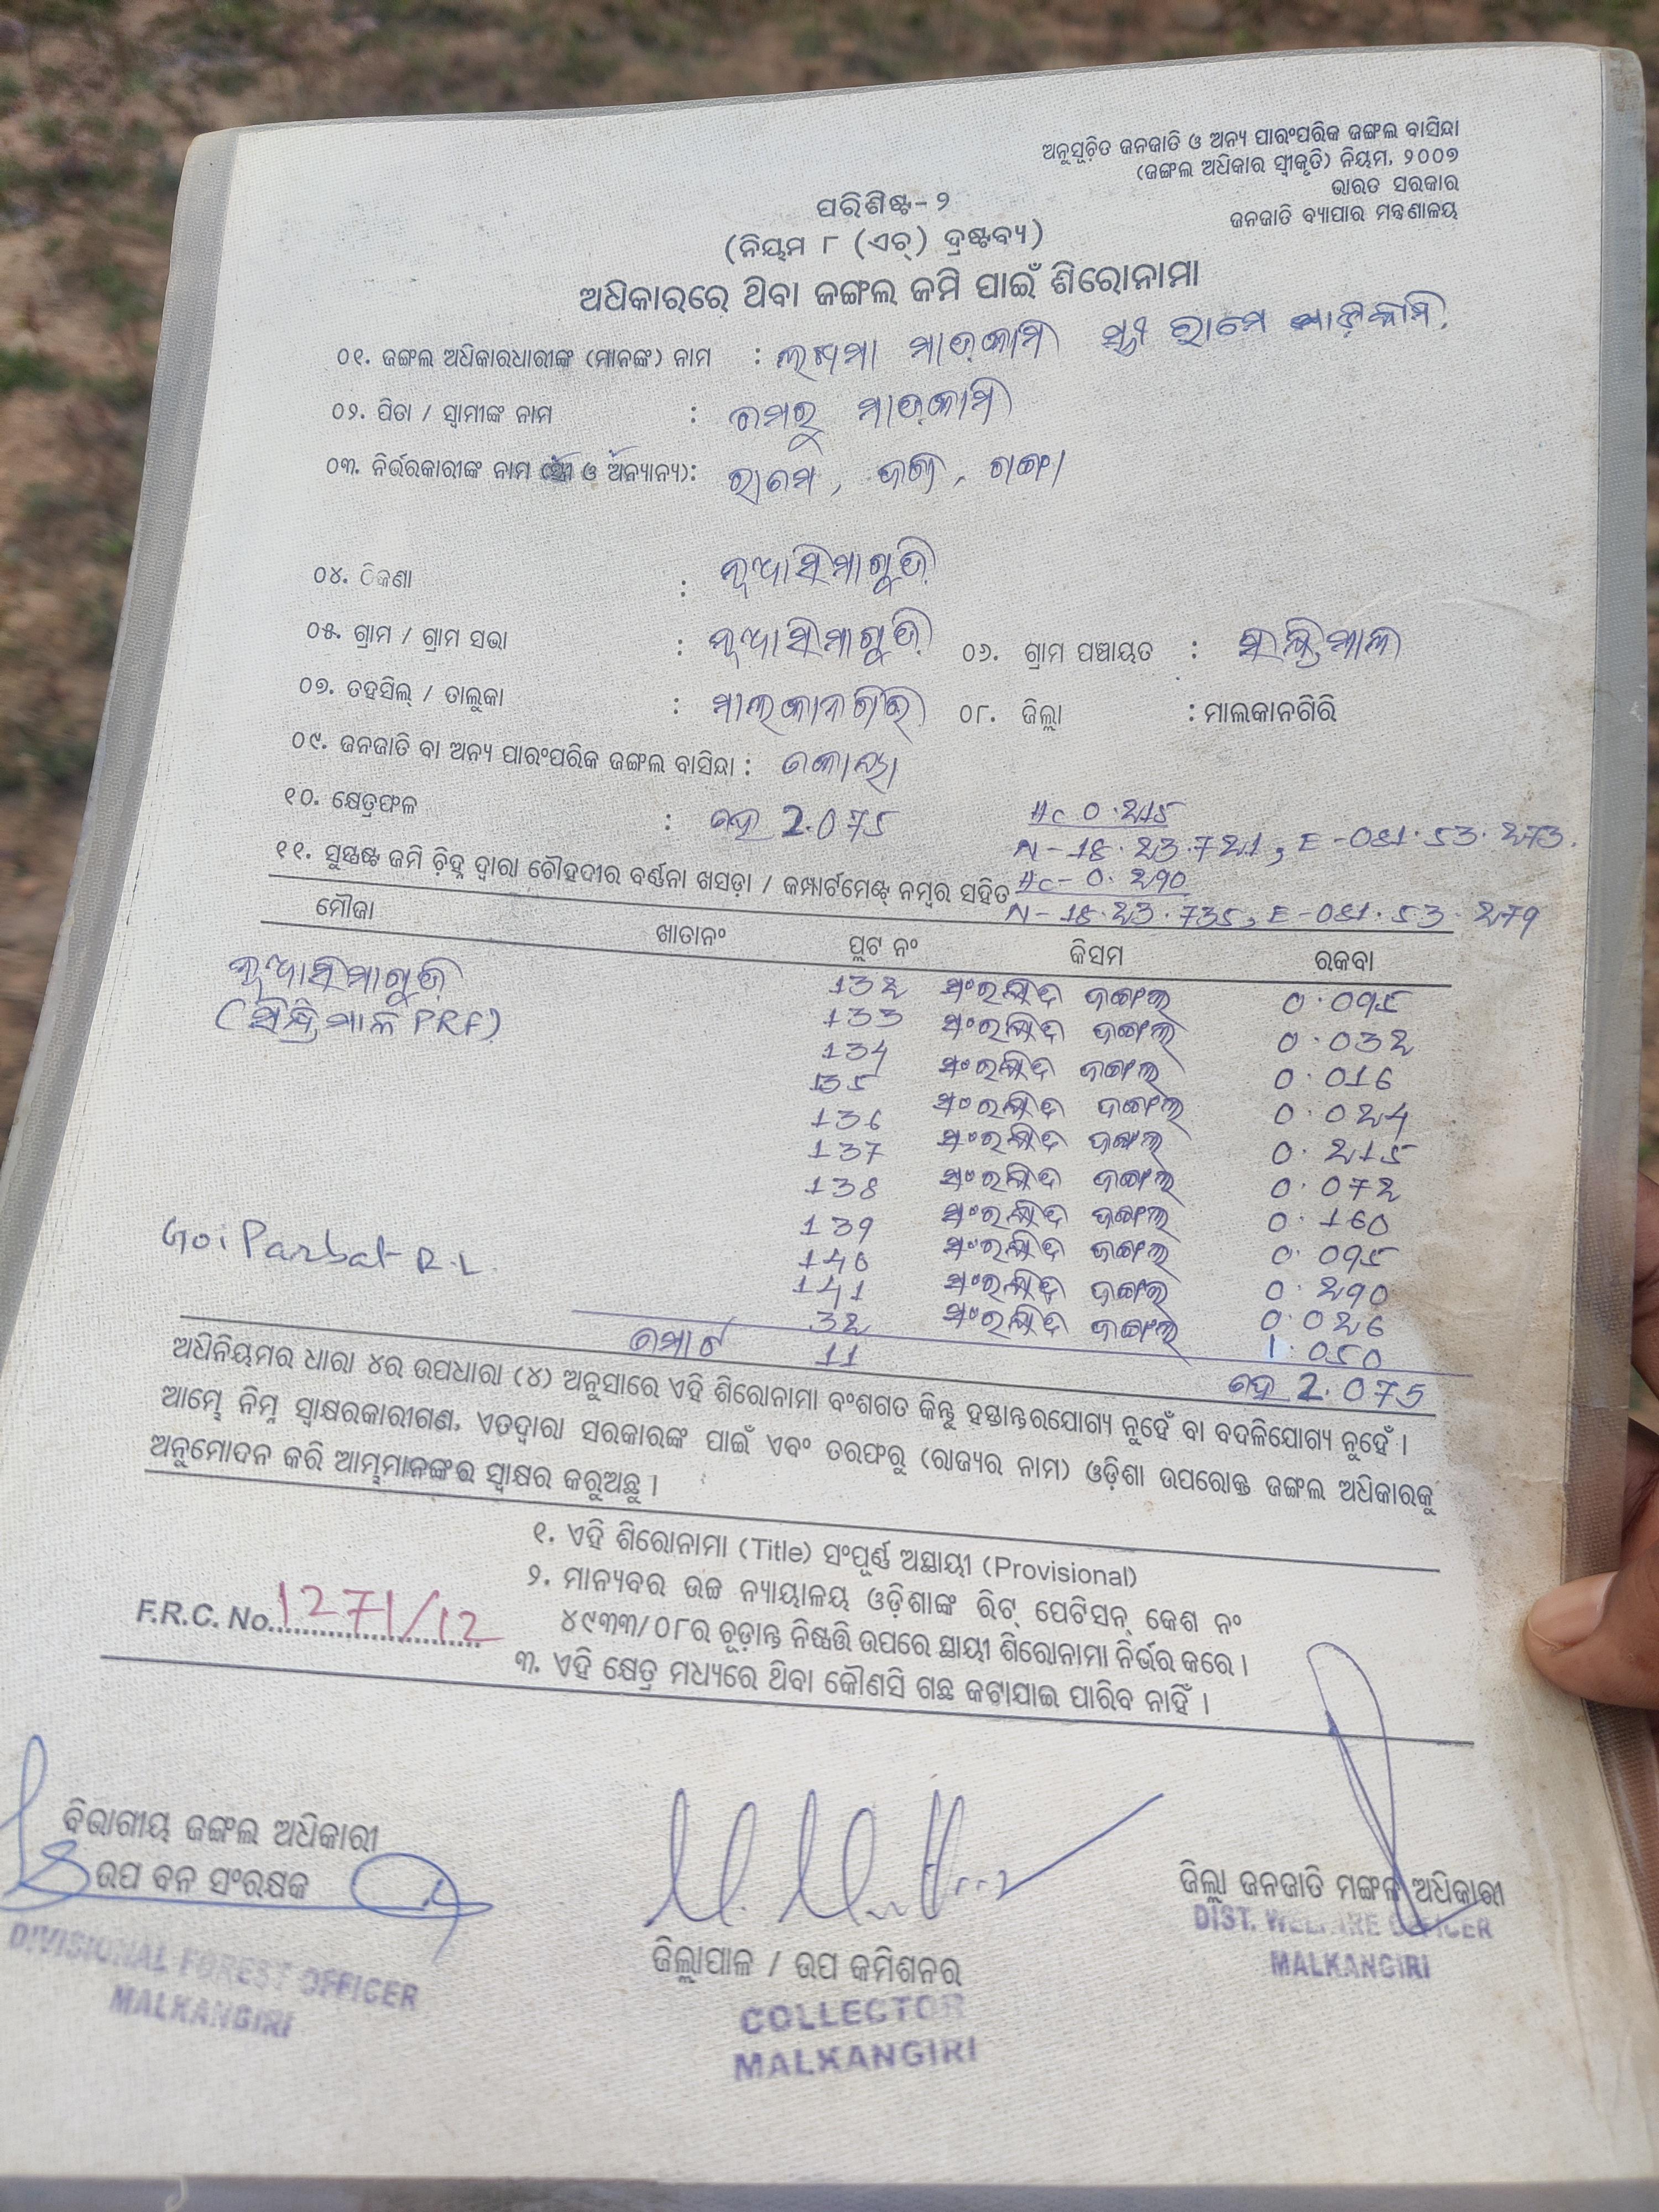 ଅନୁସୂଚିତ ଜନଜାତି ଓ ଅନ୍ୟ ପାରଂପରିକ ଜଙ୍ଗଲ ବାସିନ୍ଦା
(ଜଙ୍ଗଲ ଅଧିକାର ସ୍ୱୀକୃତି) ନିୟମ, ୨୦୦୭
ଭାରତ ସରକାର
ଜନଜାତି ବ୍ୟାପାର ମନ୍ତ୍ରଣାଳୟ
ପରିଶିଷ୍ଟ-୨
(ନିୟମ ୮ (ଏଚ୍) ଦ୍ରଷ୍ଟବ୍ୟ)
ଅଧିକାରରେ ଥିବା ଜଙ୍ଗଲ ଜମି ପାଇଁ ଶିରୋନାମା
୦୧. ଜଙ୍ଗଲ ଅଧିକାରଧାରୀଙ୍କ (ମାନଙ୍କ) ନାମ : ମାଡ଼କାମି ସ୍ତ୍ରୀ ରାମେ ମାଡ଼କାମି
୦୨. ପିତା / ସ୍ୱାମୀଙ୍କ ନାମ : ମାଡ଼କାମି
୦୩. ନିର୍ଭରକାରୀଙ୍କ ନାମ (ସ୍ତ୍ରୀ ଓ ଅନ୍ୟାନ୍ୟ): ରାମେ, ଗଙ୍ଗା
୦୪. ଠିକଣା : ନୂଆସିମାଗୁଡ଼ି
୦୫. ଗ୍ରାମ / ଗ୍ରାମ ସଭା : ନୂଆସିମାଗୁଡ଼ି ୦୬. ଗ୍ରାମ ପଞ୍ଚାୟତ : ସିନ୍ଧ୍ରିମାଳ
୦୭. ତହସିଲ୍ / ତାଲୁକା : ମାଲକାନଗିରି ୦୮. ଜିଲ୍ଲା : ମାଲକାନଗିରି
୦୯. ଜନଜାତି ବା ଅନ୍ୟ ପାରଂପରିକ ଜଙ୍ଗଲ ବାସିନ୍ଦା : କୋୟା
୧୦. କ୍ଷେତ୍ରଫଳ : ହେ 2.075 Hc 0.215
N-18.23.721, E-081.53.273.
୧୧. ସୁସ୍ପଷ୍ଟ ଜମି ଚିହ୍ନ ଦ୍ୱାରା ଚୌହଦୀର ବର୍ଣ୍ଣନା ଖସଡ଼ା / କମ୍ପାର୍ଟମେଣ୍ଟ୍ ନମ୍ବର ସହିତ Hc-0.290
N-18.23.735, E-081.53.279
ମୌଜା ଖାତାନଂ ପ୍ଲଟ ନଂ କିସମ ରକବା
ନୂଆସିମାଗୁଡ଼ି 132 ସଂରକ୍ଷିତ ଜଙ୍ଗଲ 0.095
(ସିନ୍ଧ୍ରିମାଳ PRF) 133 ସଂରକ୍ଷିତ ଜଙ୍ଗଲ 0.032
134 ସଂରକ୍ଷିତ ଜଙ୍ଗଲ 0.016
135 ସଂରକ୍ଷିତ ଜଙ୍ଗଲ 0.024
136 ସଂରକ୍ଷିତ ଜଙ୍ଗଲ 0.215
137 ସଂରକ୍ଷିତ ଜଙ୍ଗଲ 0.072
138 ସଂରକ୍ଷିତ ଜଙ୍ଗଲ 0.160
139 ସଂରକ୍ଷିତ ଜଙ୍ଗଲ 0.095
140 ସଂରକ୍ଷିତ ଜଙ୍ଗଲ 0.290
141 ସଂରକ୍ଷିତ ଜଙ୍ଗଲ 0.026
Goi Parbat R.L 32 1.050
ମୋଟ 11 ହେ 2.075
ଅଧିନିୟମର ଧାରା ୪ର ଉପଧାରା (୪) ଅନୁସାରେ ଏହି ଶିରୋନାମା ବଂଶଗତ କିନ୍ତୁ ହସ୍ତାନ୍ତରଯୋଗ୍ୟ ନୁହେଁ ବା ବଦଳିଯୋଗ୍ୟ ନୁହେଁ ।
ଆମ୍ଭେ ନିମ୍ନ ସ୍ୱାକ୍ଷରକାରୀଗଣ, ଏତଦ୍ୱାରା ସରକାରଙ୍କ ପାଇଁ ଏବଂ ତରଫରୁ (ରାଜ୍ୟର ନାମ) ଓଡ଼ିଶା ଉପରୋକ୍ତ ଜଙ୍ଗଲ ଅଧିକାରକୁ
ଅନୁମୋଦନ କରି ଆମ୍ଭମାନଙ୍କର ସ୍ୱାକ୍ଷର କରୁଅଛୁ ।
୧. ଏହି ଶିରୋନାମା (Title) ସଂପୂର୍ଣ୍ଣ ଅସ୍ଥାୟୀ (Provisional)
୨. ମାନ୍ୟବର ଉଚ୍ଚ ନ୍ୟାୟାଳୟ ଓଡ଼ିଶାଙ୍କ ରିଟ୍ ପେଟିସନ୍ କେଶ ନଂ
୪୯୩୩/୦୮ର ଚୂଡ଼ାନ୍ତ ନିଷ୍ପତ୍ତି ଉପରେ ସ୍ଥାୟୀ ଶିରୋନାମା ନିର୍ଭର କରେ ।
F.R.C. No. 1271/12
୩. ଏହି କ୍ଷେତ୍ର ମଧ୍ୟରେ ଥିବା କୌଣସି ଗଛ କଟାଯାଇ ପାରିବ ନାହିଁ ।
ବିଭାଗୀୟ ଜଙ୍ଗଲ ଅଧିକାରୀ
ଉପ ବନ ସଂରକ୍ଷକ
DIVISIONAL FOREST OFFICER
MALKANGIRI
ଜିଲ୍ଲାପାଳ / ଉପ କମିଶନର
COLLECTOR
MALKANGIRI
ଜିଲ୍ଲା ଜନଜାତି ମଙ୍ଗଳ ଅଧିକାରୀ
DIST. WELFARE OFFICER
MALKANGIRI